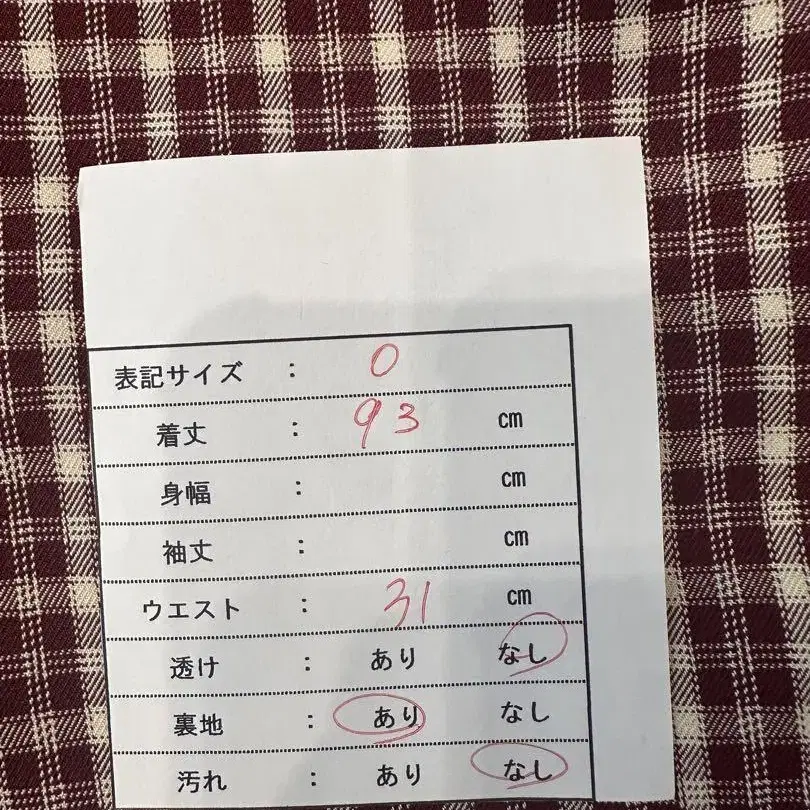 表記サイズ : 0
着丈 : 93 cm
身幅 : cm
袖丈 : cm
ウエスト : 31 cm
透け : あり なし
裏地 : あり なし
汚れ : あり なし